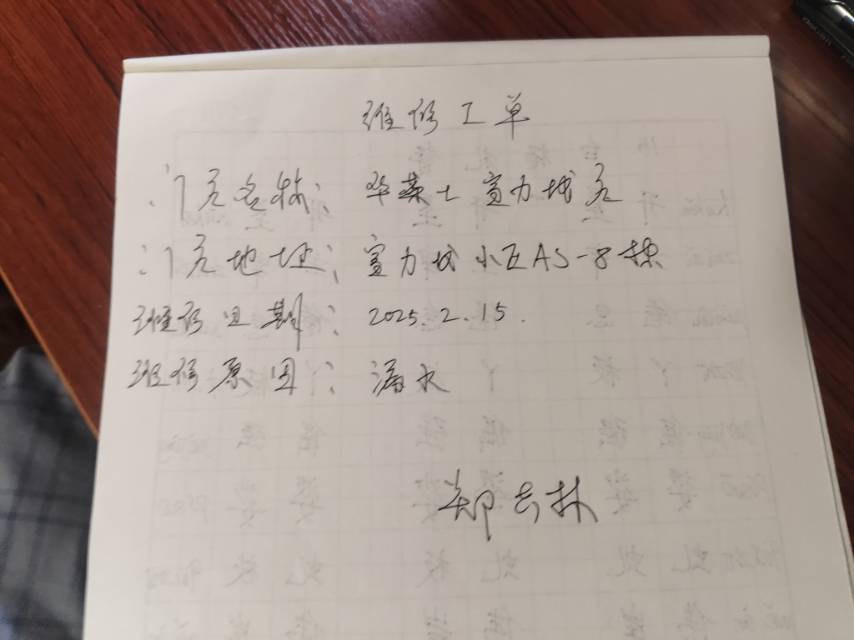 维修工单
门店名称: 华莱士富力城店
门店地址: 富力城小区A5-8栋
维修日期: 2025.2.15.
维修原因: 漏水
郑吉林